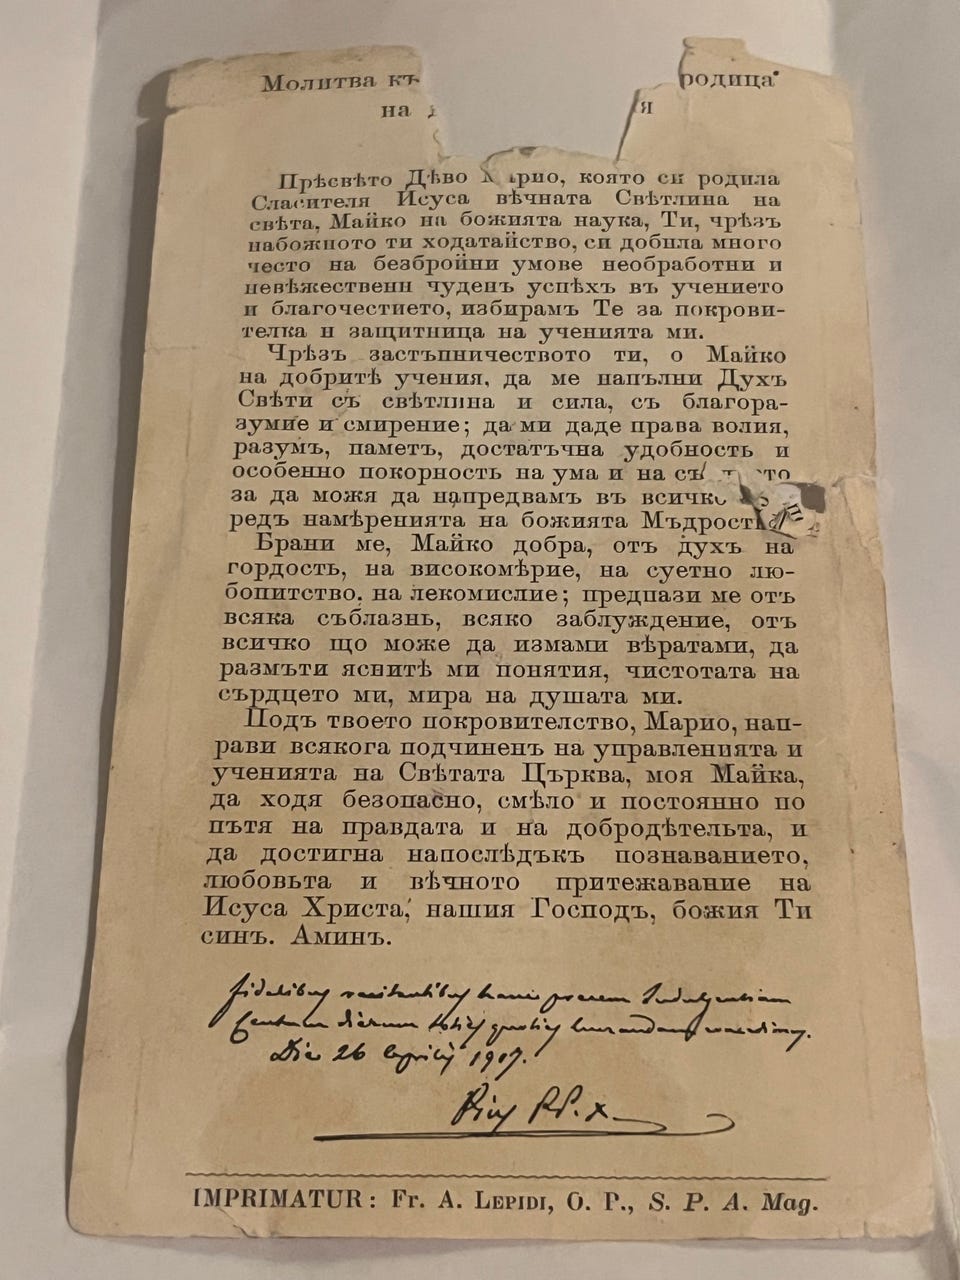 Молитва къ родица
на
Прѣсвѣто Дѣво Марио, която си родила
Спасителя Исуса вѣчната Свѣтлина на
свѣта, Майко на божията наука, Ти, чрѣзъ
набожното ти ходатайство, си добила много
често на безбройни умове необработни и
невѣжествени чуденъ успѣхъ въ учението
и благочестието, избирамъ Те за покрови-
телка и защитница на ученията ми.
Чрѣзъ застъпничеството ти, о Майко
на добритѣ учения, да ме напълни Духъ
Свѣти съ свѣтлина и сила, съ благора-
зумие и смирение; да ми даде права волия,
разумъ, паметъ, достатъчна удобность и
особенно покорность на ума и на
за да можя да напредвамъ въ всичко
редъ намѣренията на божията Мъдрость.
Брани ме, Майко добра, отъ духъ на
гордость, на високомѣрие, на суетно лю-
бопитство, на лекомислие; предпази ме отъ
всяка съблазнь, всяко заблуждение, отъ
всичко що може да измами вѣратами, да
размъти яснитѣ ми понятия, чистотата на
сърдцето ми, мира на душата ми.
Подъ твоето покровителство, Марио, нап-
рави всякога подчиненъ на управленията и
ученията на Свѣтата Църква, моя Майка,
да ходя безопасно, смѣло и постоянно по
пътя на правдата и на добродѣтельта, и
да достигна напослѣдъкъ познаванието,
любовьта и вѣчното притежавание на
Исуса Христа, нашия Господъ, божия Ти
синъ. Аминъ.
fidelibus recitantibus hanc precem Indulgentiam
Centum dierum toties quoties lucrandam concedimus.
Die 26 Aprilis 1907.
Pius PP. X
IMPRIMATUR: Fr. A. LEPIDI, O. P., S. P. A. Mag.